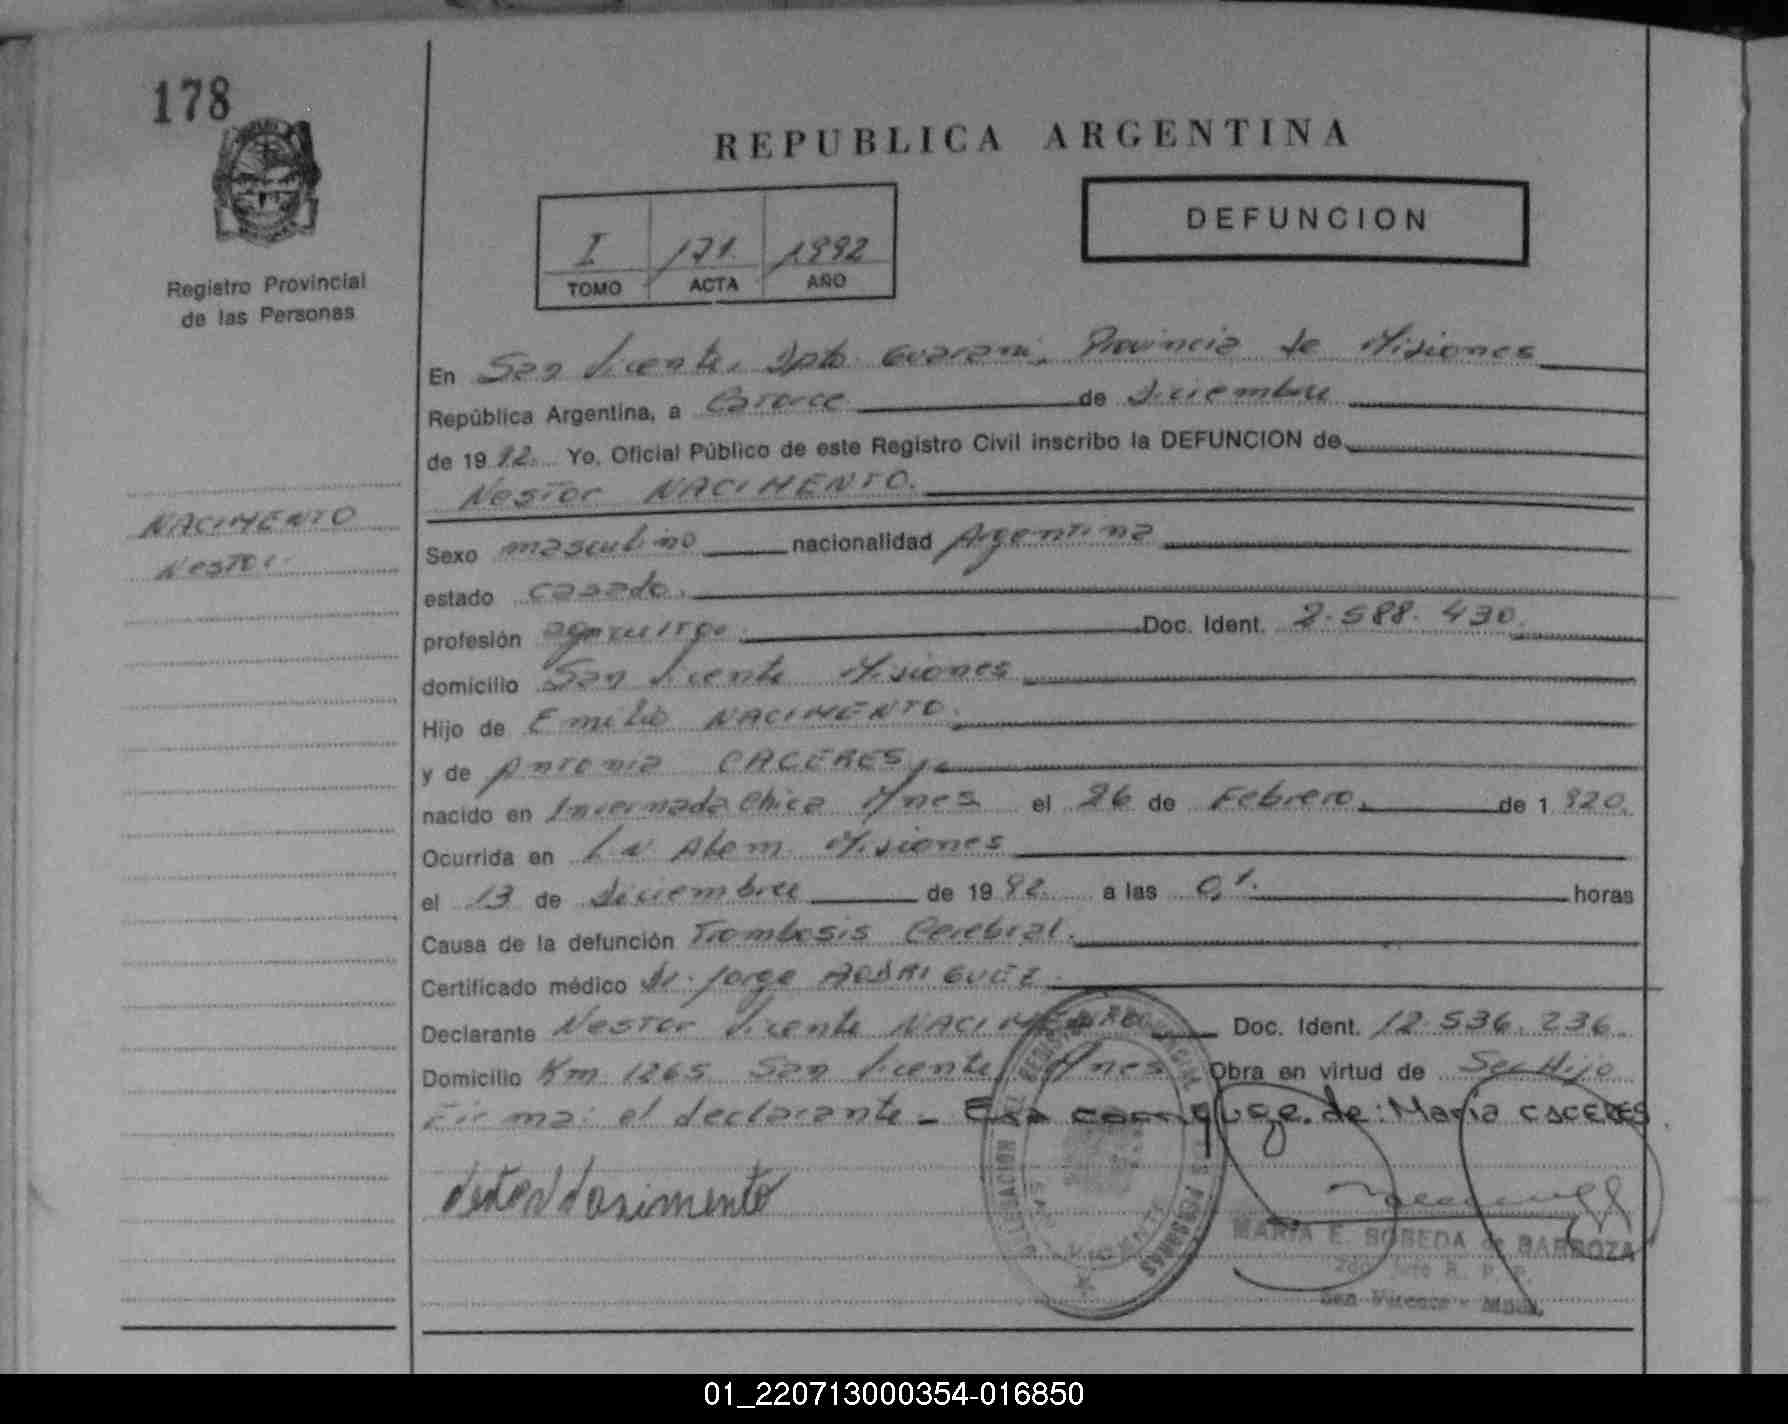 178
REPUBLICA ARGENTINA
DEFUNCION
I 171. 1992
TOMO ACTA AÑO
Registro Provincial
de las Personas
En San Vicente, Dpto. Guarani, Provincia de Misiones
República Argentina, a Catorce de Diciembre
de 19 92. Yo, Oficial Público de este Registro Civil inscribo la DEFUNCION de
Nestor NACIMENTO.
NACIMENTO
Nestor.
Sexo masculino nacionalidad Argentina
estado casado.
profesión agricultor. Doc. Ident. 2.588.430.
domicilio San Vicente Misiones
Hijo de Emilio NACIMENTO.
y de Antonia CACERES,
nacido en Invernada Chica Mnes el 26 de Febrero, de 1 920.
Ocurrida en L N Alem Misiones
el 13 de Diciembre de 19 92. a las 0,1. horas
Causa de la defunción Trombosis Cerebral.
Certificado médico Dr. Jorge RODRIGUEZ.
Declarante Nestor Vicente NACIMENTO Doc. Ident. 12.536.236.
Domicilio Km 1265 San Vicente Mnes Obra en virtud de Ser Hijo
Firma: el declarante - Era conyuge. de: Maria CACERES.
MARIA E. BOBEDA de BARBOZA
San Vicente - Mnes.
01_220713000354-016850